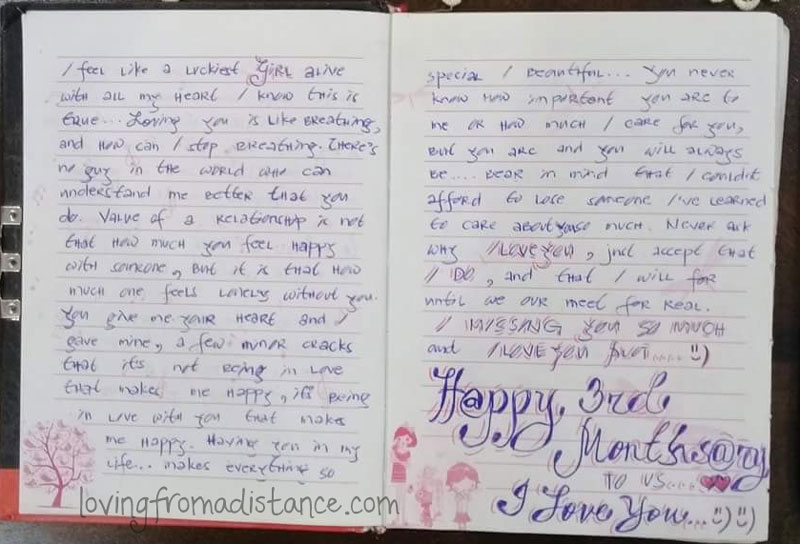 I feel like a luckiest girl alive
with all my heart I know this is
true... Loving you is like breathing,
and how can I stop breathing. There's
no guy in the world who can
understand me better that you
do. Value of a relationship is not
that how much you feel happy
with someone, but it is that how
much one feels lonely without you.
You give me your heart and I
gave mine, a few minor cracks
that it's not being in love
that makes me happy, it's being
in love with you that makes
me happy. Having you in my
life... makes everything so
special / beautiful... You never
know how important you are to
me or how much I care for you,
but you are and you will always
be.... bear in mind that I couldn't
afford to lose someone I've learned
to care about you so much. Never ask
why I LOVE YOU, just accept that
I DO, and that I will for
until we our meet for real.
I MISSING you SO MUCH
and I LOVE YOU..... :)
Happy 3rd
Months@ry
TO US....
I Love You... :) :)
lovingfromadistance.com